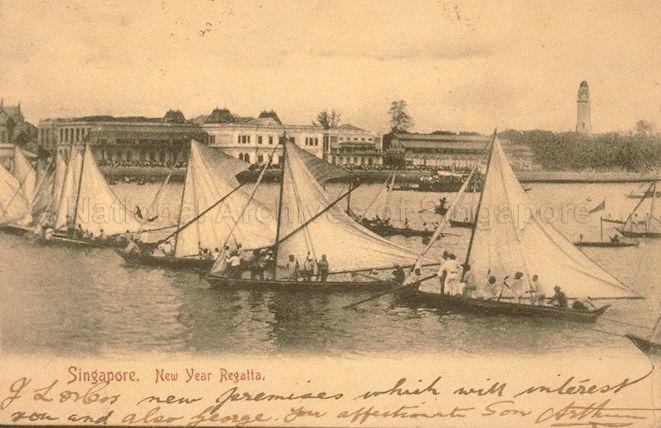 National Archives of Singapore
Singapore. New Year Regatta.
J L & Cos new premises which will interest
you and also George. Your affectionate Son Arthur